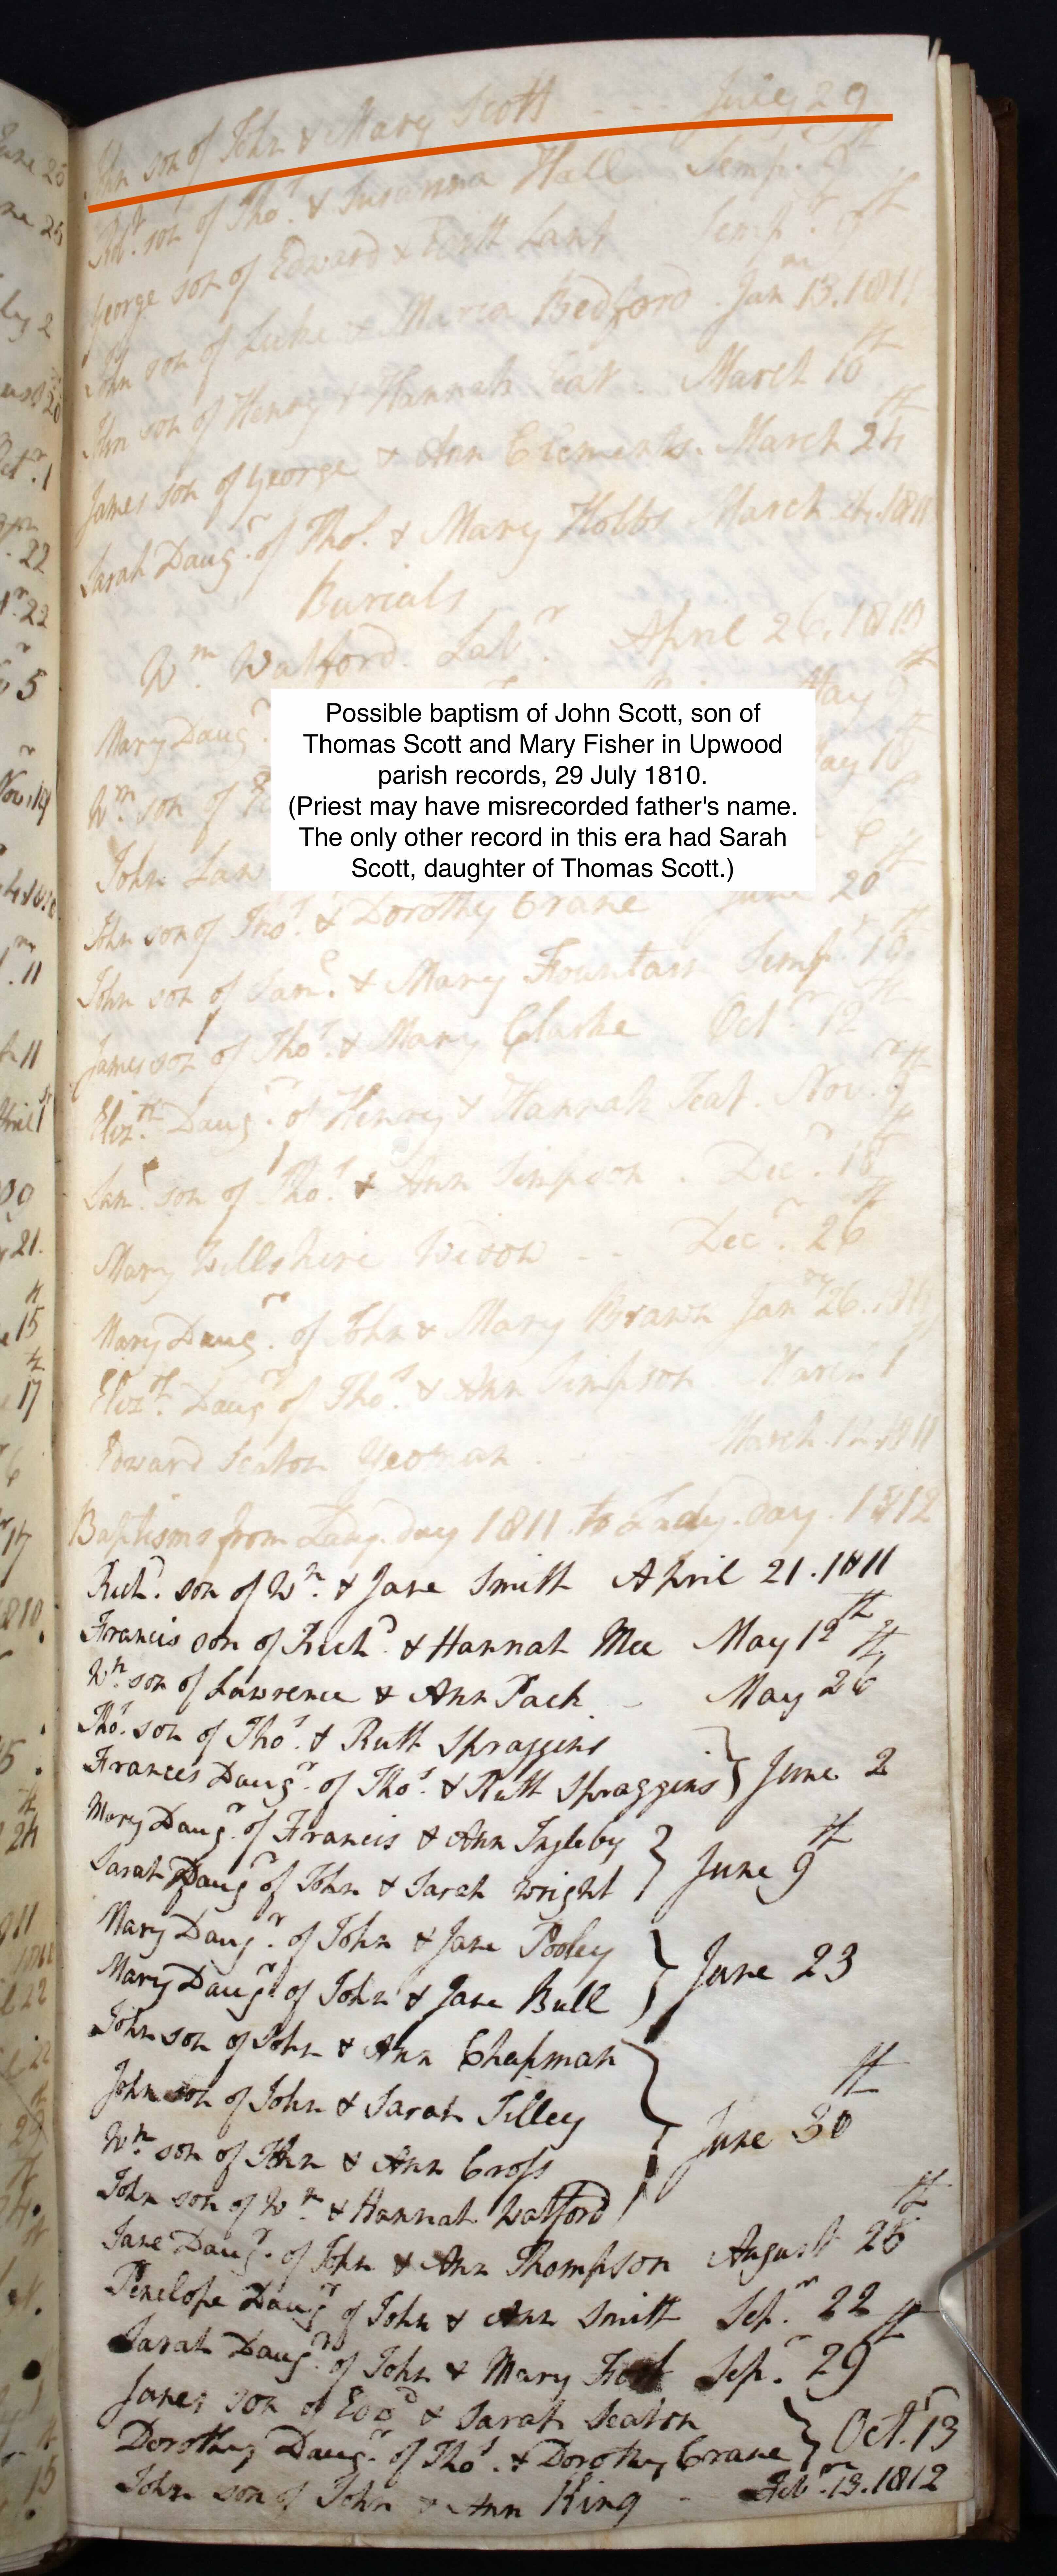 John son of John & Mary Scott - - - July 29
son of Tho.s & Susanna Hall Semp.r 9th
George son of Edward & Faith Law Semp.r 9th
John son of Luke & Maria Bedford . Jan.ry 13. 1811
John son of Henry & Hannah Feat . March 10th
James son of George & Ann Clements. March 24th
Sarah Daug.r of Tho.s & Mary Hobbs March 24. 1811
Burials
W.m Watford. Lab.r April 26. 1810
Mary Daug.r May
W.m son of May 10
John Law
John son of Tho.s & Dorothy Crane June 20th
John son of Sam.l & Mary Fountain Semp.r 16
James son of Tho.s & Mary Clarke Oct.r 12th
Eliz.th Daug.r of Henry & Hannah Feat. Nov.r 9th
Sam.l son of Tho.s & Ann Simpson . Dec.r 16th
Mary Willshire Widow - - Dec.r 26th
Mary Daug.r of John & Mary Brawn Jan.ry 26. 1811
Eliz.th Daug.r of Tho.s & Ann Simpson March 1
Edward Seaton Yeoman . March 12. 1811
Baptisms from Lady. day 1811 to Lady. day. 1812
Rich.d son of W.m & Jane Smith April 21. 1811
Francis son of Rich.d & Hannah Mee May 12th
W.m son of Lawrence & Ann Pack - May 26th
Tho.s son of Tho.s & Ruth Spraggins
Frances Daug.r of Tho.s & Ruth Spraggins } June 2
Mary Daug.r of Francis & Ann Ingleby
Sarah Daug.r of John & Sarah Wright } June 9th
Mary Daug.r of John & Jane Pooley
Mary Daug.r of John & Jane Bull } June 23
John son of John & Ann Chapman
John son of John & Sarah Tilley
W.m son of John & Ann Cross } June 30th
John son of W.m & Hannah Watford
Jane Daug.r of John & Ann Thompson August 25th
Penelope Daug.r of John & Ann Smith Sep.r 22
Sarah Daug.r of John & Mary Sep.r 29th
James son of Edw.d & Sarah Seaton
Dorothy Daug.r of Tho.s & Dorothy Crane } Oct.r 13
John son of John & Ann King - Feb.ry 13. 1812
Possible baptism of John Scott, son of
Thomas Scott and Mary Fisher in Upwood
parish records, 29 July 1810.
(Priest may have misrecorded father's name.
The only other record in this era had Sarah
Scott, daughter of Thomas Scott.)